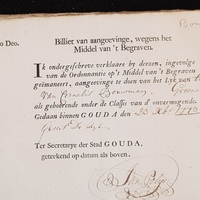 Bou
o Deo.
Billiet van aangeevinge, wegens het
Middel van 't Begraven.
IK ondergeschreve verklaare by dezen, ingevolge
van de Ordonnantie op 't Middel van 't Begraven
geëmaneert, aangeevinge te doen van het Lyk van
Bouwman
als gehoorende onder de Classis van d' onvermogende
Gedaan binnen GOUDA den 30 1773
Ter Secretarye der Stad GOUDA,
geteekend op datum als boven.